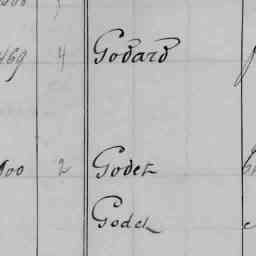 469 4 Godard
900 2 Godet
Godet